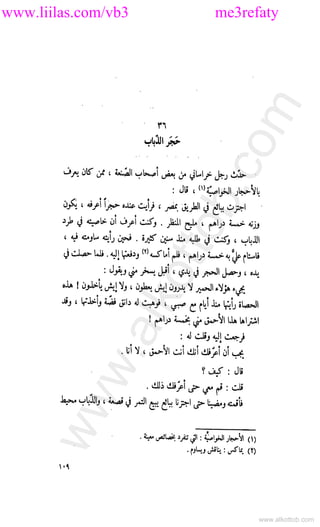 www.liilas.com/vb3
me3refaty
٣٦
حَجَر الذّباب
حدّث رجل خراساني من بعض أصحاب الصَّنعة ، ممن كان يعرف
بالأحجار الخواصيّة (١) ، قال :
اجتزت ببائع في الطريق بمصر ، فرأيت عنده حجراً أعرفه ، يكون
وزنه خمسة دراهم ، مليح المنظر . وكنت أعرف أن خاصيته في طرد
الذباب ، وكنت في طلبه منذ سنين كثيرة . فحين رأيته ساومته فيه ،
فاستام عليّ به خمسة دراهم ، فلم أماكسه (٢) ودفعتها إليه . فلما حصلت في
يده ، وحصل الحجر في يدي ، أقبل يسخر مني ويقول :
يجيء هؤلاء الحمير لا يدرون أيش يعطون ، ولا أيش يأخذون ! هذا
الحصاة رأيتها منذ أيام مع صبي ، فوهبت له دانق فضّة وأخذتها ، وقد
اشتراها هذا الأحمق مني بخمسة دراهم !
فرجعت إليه وقلت له :
يجب أن أعرفك أنك أنت الأحمق ، لا أنا .
قال : كيف ؟
قلت : قم معي حتى أعرفك ذلك .
فأقمته ومضينا حتى اجتزنا ببائع يبيع التمر في قصعة ، والذباب محيط
(١) الأحجار الخواصيّة : التي تنفرد بخصائص معينة .
(٢) يماكس : يناقش ويساوم .
١٠٩
www.alkottob.com
www.alkottob.com